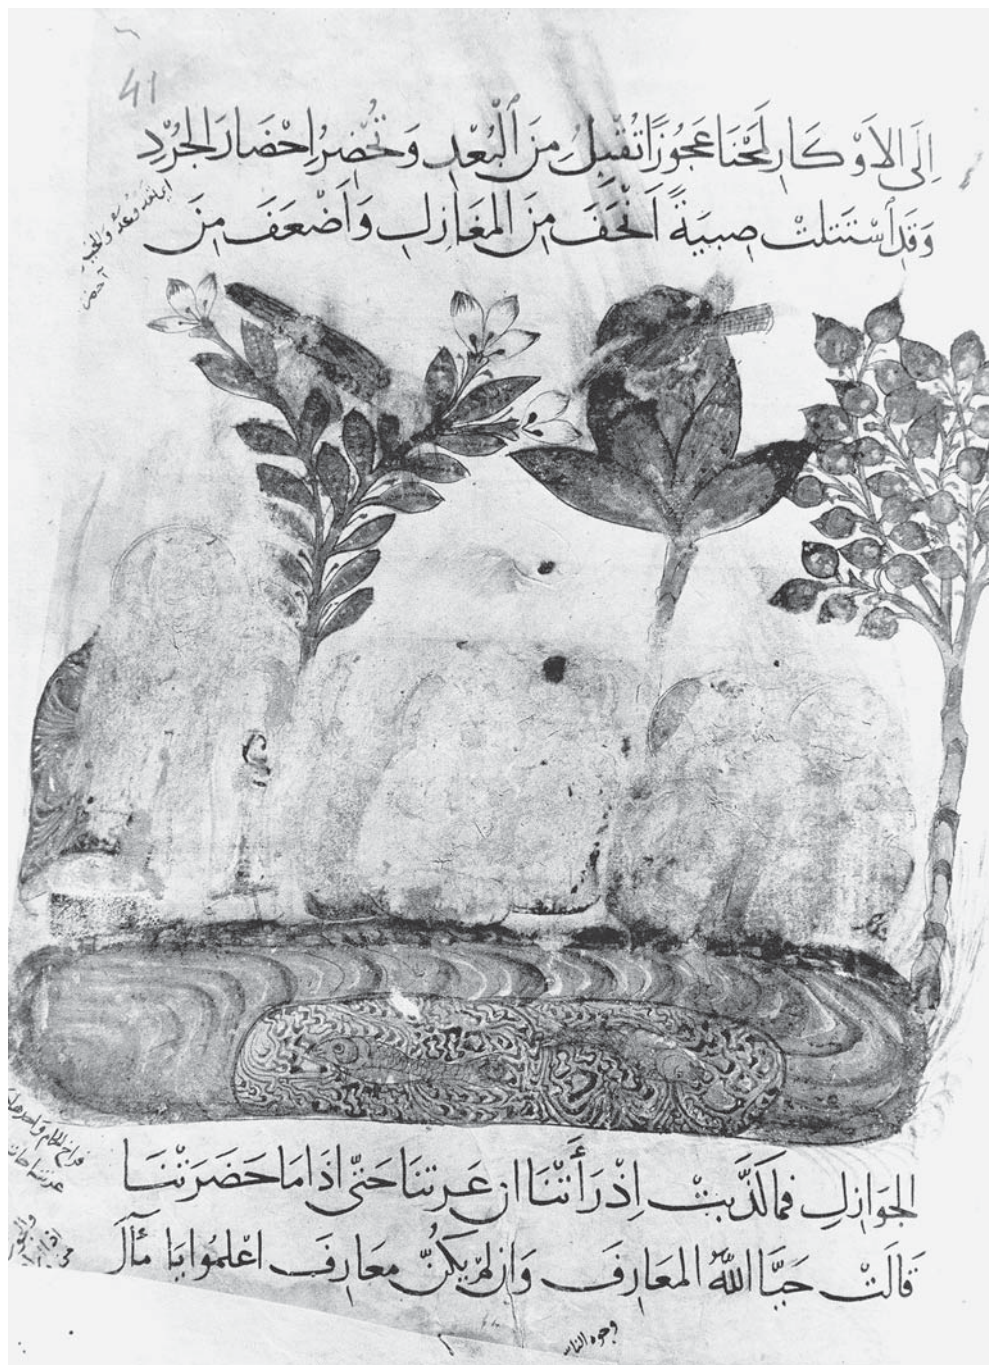 41
إِلَى الأَوْكَارِ لَمَحْنَا عَجُوزًا تُقْبِلُ مِنَ ٱلْبُعْدِ وَتُحْضِرُ إِحْضَارَ الجُرْدِ
وَقَدِ ٱسْتَتْلَتْ صِبْيَةً أَنْحَفَ مِنَ المَغَازِلِ وَأَضْعَفَ مِنَ
الجَوَازِلِ فَمَا كَذَّبَتْ إِذْ رَأَتْنَا ان عَرَتْنَا حَتّى اذَا مَا حَضَرَتْنَا
قَالَتْ حَيَّا اللّٰهُ المَعَارِفَ وَان لَمْ يَكُنَّ مَعَارِفَ اعْلَمُوا يَا مَآلَ
وجوه الناس